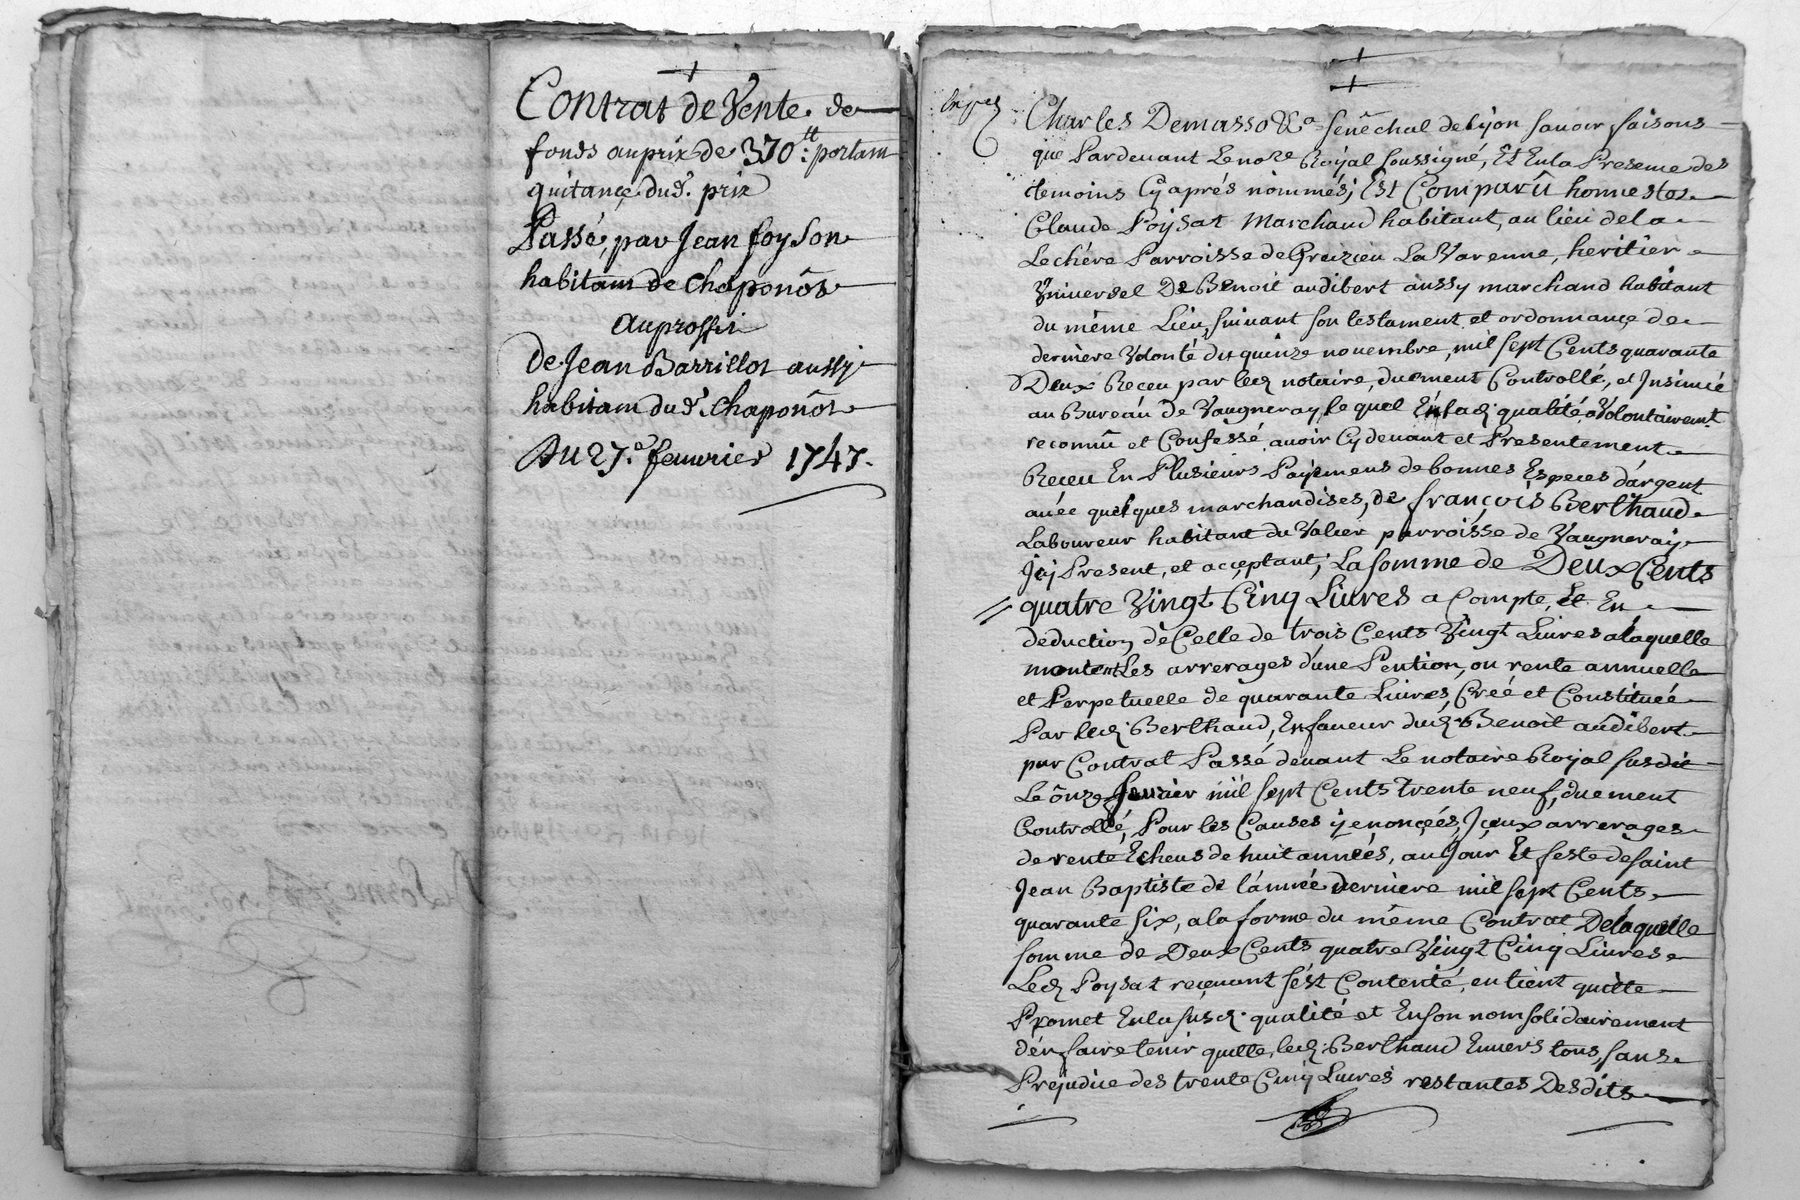 Contrat de Vente de
fonds au prix de 370.tt portant
quitance dud. prix
Passé, par Jean foyson
habitant de Chaponôst
au proffit
De Jean Barrillot aussy
habitant dud. Chaponôst
Du 27.e feuurier 1747.
Charles Demasso &a senêchal de Lyon sauoir faisons
que Pardeuant Le nore Royal soussigné, Et En la Presence des
temoins Cy aprés nommés; Est Comparû honneste
Claude Poysat Marchand habitant, au lieu de la
Lechére Parroisse de Greizieu La Varenne, heritier
Vniuersel De Benoit audibert aussy marchand habitant
du même Lieu, suiuant son testament et ordonnançe de
derniere Volonté du quinze nouembre, mil sept Cents quarante
Deux Receu par led. notaire, duement Controllé, et Insinué
au Bureau de Vaugneray, le quel En lad. qualité a Volontairemt
reconnu et Confessé auoir Cy deuant et Presentement
Receu En Plusieurs Payemens de bonnes Especes d'argent
auéc quelques marchandises, de françois Berthaud
Laboureur habitant du Valier parroisse de Vaugneray
Jcy Present, et acçeptant; La somme de Deux Cents
quatre Vingt Cinq Liures a Compte, Et En
deduction de Celle de trois Cents Vingt Liures a laquelle
montent Les arrerages d'une Pention, ou rente annuelle
et Perpetuelle de quarante Liures, Créé et Constituée
Par led. Berthaud, En faueur dud. Benoit audibert
par Contrat Passé deuant Le notaire Royal susdit
Le ônze Januier mil sept Cents trente neuf, duement
Controllé, Pour les Causes y enonçées, Jceux arrerages
de rente Echeus de huit années, au Jour Et feste de saint
Jean Baptiste de l'année derniere mil sept Cents
quarante six, a la forme du même Contrat De laquelle
somme de Deux Cents quatre Vingt Cinq Liures
Led. Poysat reçeuant s'est Contenté, en tient quitte
Promet En la susd. qualité et En son nom solidairement
d'en faire tenir quitte, led. Berthaud Enuers tous, sans
Prejudice des trente Cinq Liures restantes Desdits